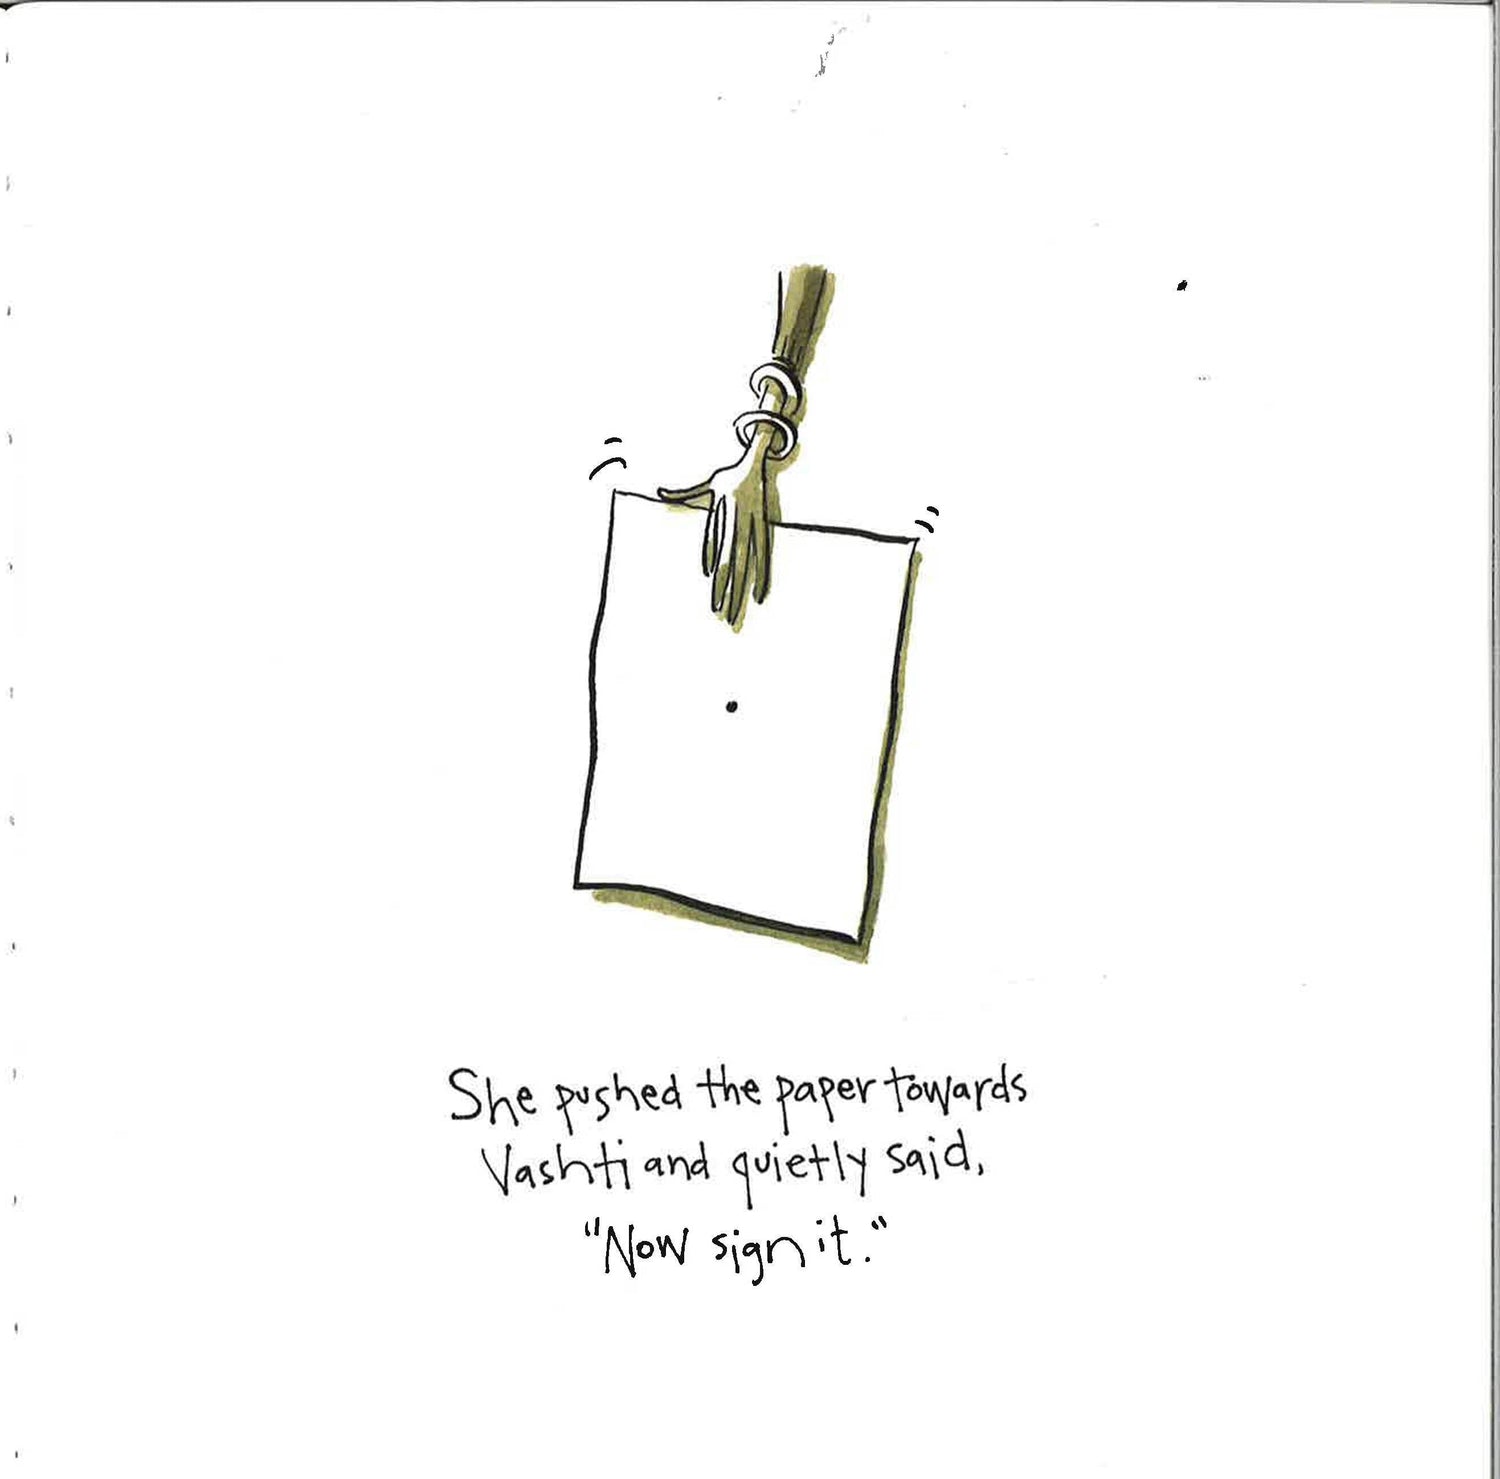 She pushed the paper towards
Vashti and quietly said,
"Now sign it."